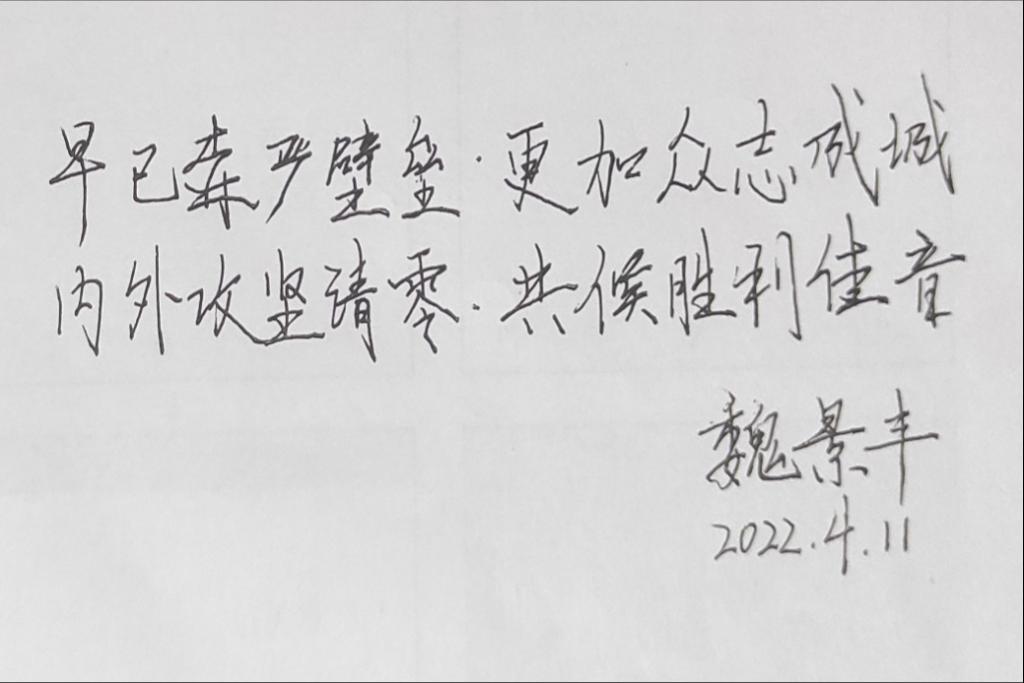 早已森严壁垒.更加众志成城
内外攻坚清零.共候胜利佳音
魏景丰
2022.4.11